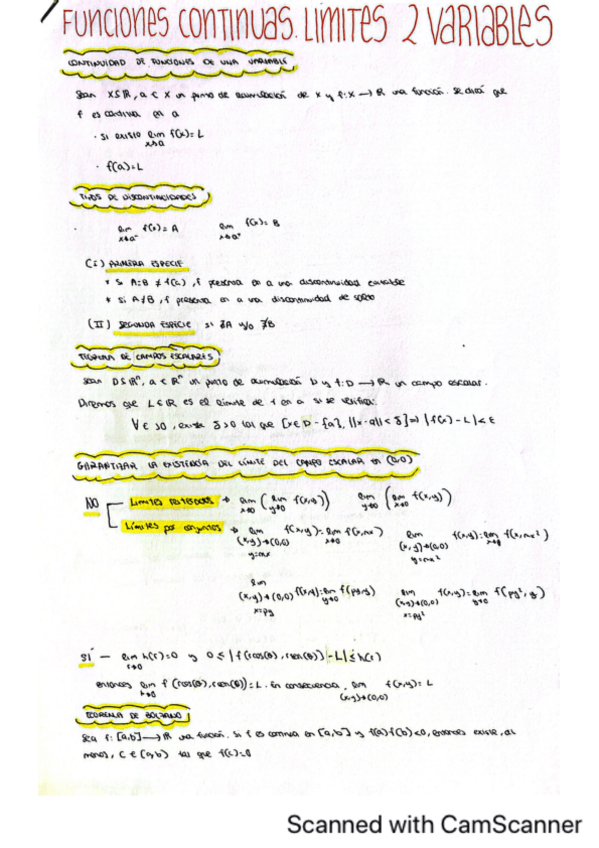 FUNCIONES CONTINUAS. LIMITES 2 VARIABLES
CONTINUIDAD DE FUNCIONES DE UNA VARIABLE
Sean X⊆ℝ, a ∈ X un punto de acumulación de X y f: X → ℝ una función. Se dirá que
f es continua en a
· Si existe lim f(x) = L
x→a
· f(a) = L
TIPOS DE DISCONTINUIDADES
· lim f(x) = A lim f(x) = B
x→a⁻ x→a⁺
(I) PRIMERA ESPECIE
* Si A=B ≠ f(a), f presenta en a una discontinuidad evitable
* Si A≠B, f presenta en a una discontinuidad de salto
(II) SEGUNDA ESPECIE si ∄A y/o ∄B
TEORIA DE CAMPOS ESCALARES
Sean D⊆ℝⁿ, a ∈ ℝⁿ un punto de acumulación D y f: D → ℝ un campo escalar.
Diremos que L∈ℝ es el límite de f en a si se verifica:
∀ε>0, existe δ>0 tal que [x∈D-{a}, ||x-a||<δ] ⇒ |f(x)-L|<ε
GARANTIZAR LA EXISTENCIA DEL LÍMITE DEL CAMPO ESCALAR EN (0,0)
NO
Limites reiterados → lim (lim f(x,y)) lim (lim f(x,y))
x→0 y→0 y→0 x→0
Límites por conjuntos → lim f(x,y) = lim f(x,mx) lim f(x,y) = lim f(x,mx²)
(x,y)→(0,0) x→0 (x,y)→(0,0) x→0
y=mx y=mx²
lim f(x,y) = lim f(py,y) lim f(x,y) = lim f(py²,y)
(x,y)→(0,0) y→0 (x,y)→(0,0) y→0
x=py x=py²
SÍ — lim h(r)=0 y 0≤|f(rcos(θ), rsen(θ))-L|≤h(r)
r→0
entonces lim f(rcos(θ), rsen(θ))=L. En consecuencia, lim f(x,y)=L
r→0 (x,y)→(0,0)
TEOREMA DE BOLZANO
Sea f: [a,b] → ℝ una función. Si f es continua en [a,b] y f(a)f(b)<0, entonces existe, al
menos, c∈(a,b) tal que f(c)=0
Scanned with CamScanner